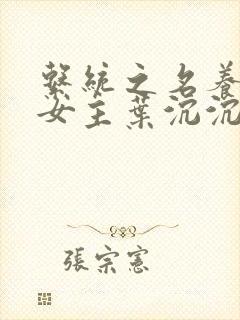 繫統之名養
女主葉沉沉
張宗憲